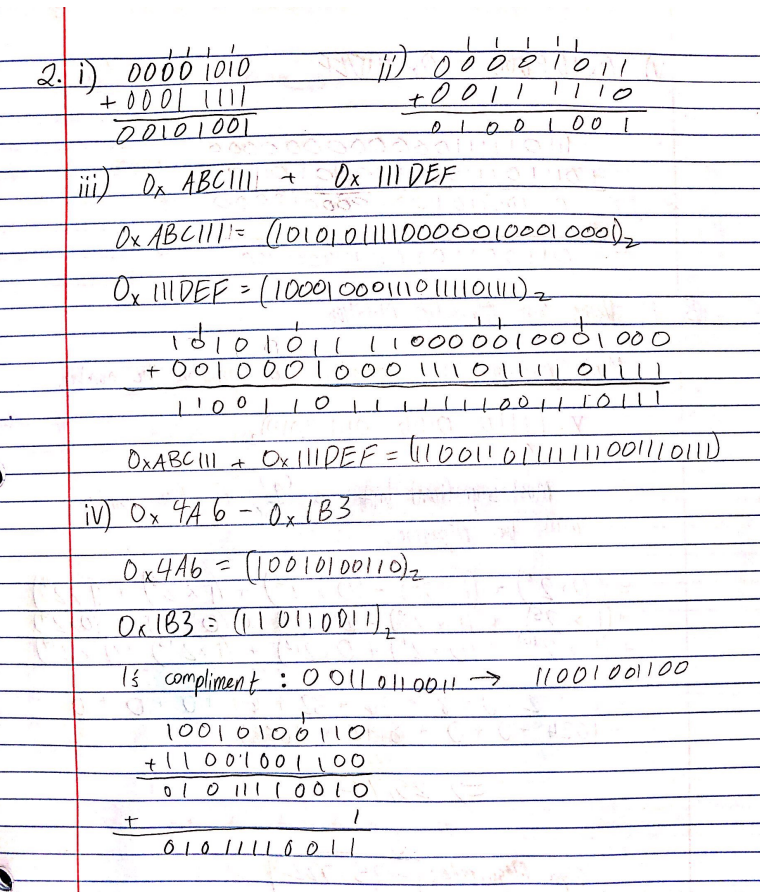 1 1 1 1 1 1 1 1 1
2. i) 00001010 ii) 000001011
+00011111 +001111110
00101001 010001001
iii) 0x ABC111 + 0x 111DEF
0x ABC111 = (101010111100000100010001)2
0x 111DEF = (100010001110111101111)2
1 1 1 1 1
10101011110000010001000
+00100010001110111101111
11001101111111001110111
0xABC111 + 0x111DEF = (11001101111111001110111)
iv) 0x 4A6 - 0x 1B3
0x4A6 = (10010100110)2
0x1B3 = (110110011)2
1's compliment : 00110110011 → 11001001100
1
10010100110
+11001001100
01011110010
+ 1
01011110011